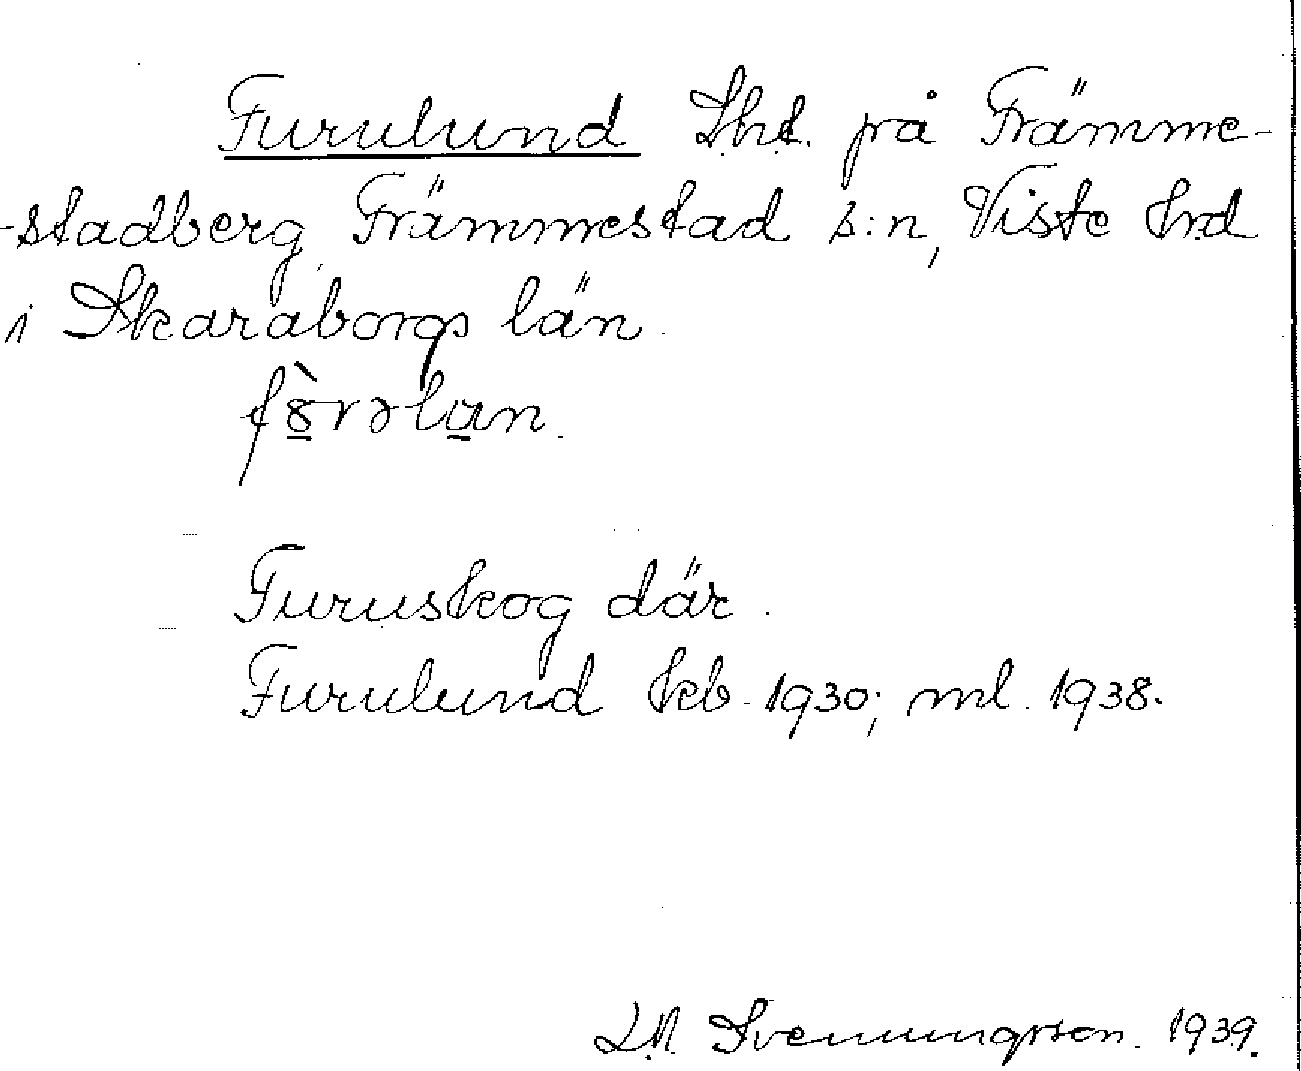 Furulund Lht. på Främme-
-stadberg, Främmestad s:n, Viste hd
i Skaraborgs län.
fȣ̀rəlɯn.
Furuskog där.
Furulund kb. 1930; ml. 1938.
L.N. Svenungsson. 1939.